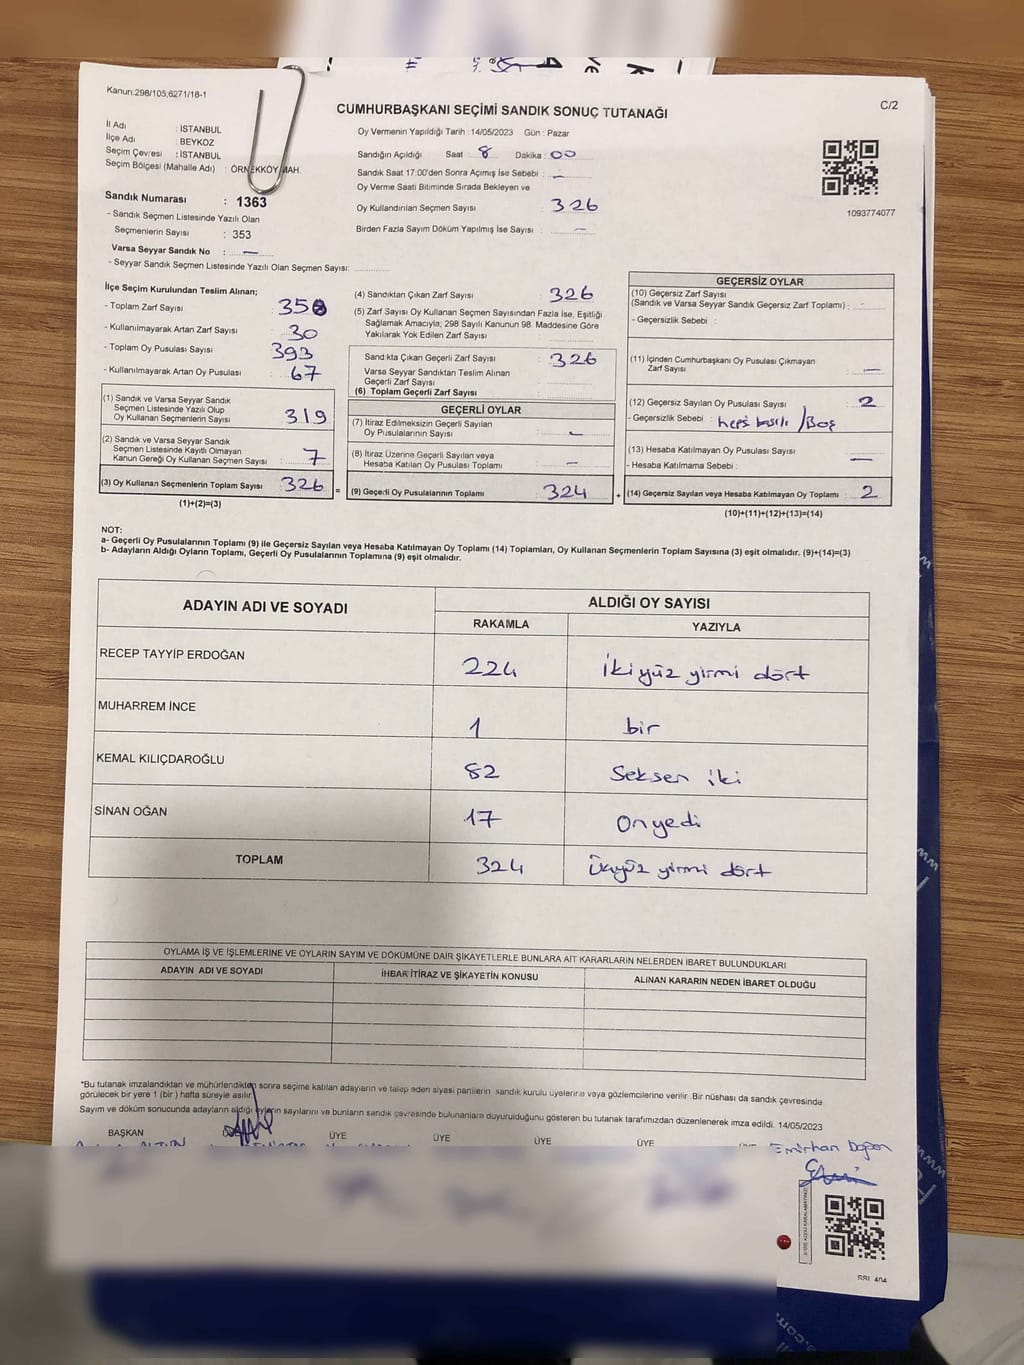 Kanun:298/105,6271/18-1
C/2
CUMHURBAŞKANI SEÇİMİ SANDIK SONUÇ TUTANAĞI
İl Adı : İSTANBUL
İlçe Adı : BEYKOZ
Seçim Çevresi : İSTANBUL
Seçim Bölgesi (Mahalle Adı) : ÖRNEKKÖY MAH.
Sandık Numarası : 1363
- Sandık Seçmen Listesinde Yazılı Olan
Seçmenlerin Sayısı : 353
Varsa Seyyar Sandık No : —
- Seyyar Sandık Seçmen Listesinde Yazılı Olan Seçmen Sayısı:
Oy Vermenin Yapıldığı Tarih : 14/05/2023 Gün : Pazar
Sandığın Açıldığı Saat : 8 Dakika : 00
Sandık Saat 17:00'den Sonra Açımış İse Sebebi : —
Oy Verme Saati Bitiminde Sırada Bekleyen ve
Oy Kullandırılan Seçmen Sayısı 326
Birden Fazla Sayım Döküm Yapılmış İse Sayısı : —
1093774077
İlçe Seçim Kurulundan Teslim Alınan;
- Toplam Zarf Sayısı : 350
- Kullanılmayarak Artan Zarf Sayısı : 30
- Toplam Oy Pusulası Sayısı : 393
- Kullanılmayarak Artan Oy Pusulası : 67
(1) Sandık ve Varsa Seyyar Sandık
Seçmen Listesinde Yazılı Olup
Oy Kullanan Seçmenlerin Sayısı : 319
(2) Sandık ve Varsa Seyyar Sandık
Seçmen Listesinde Kayıtlı Olmayan
Kanun Gereği Oy Kullanan Seçmen Sayısı : 7
(3) Oy Kullanan Seçmenlerin Toplam Sayısı : 326 =
(1)+(2)=(3)
(4) Sandıktan Çıkan Zarf Sayısı : 326
(5) Zarf Sayısı Oy Kullanan Seçmen Sayısından Fazla İse, Eşitliği
Sağlamak Amacıyla; 298 Sayılı Kanunun 98. Maddesine Göre
Yakılarak Yok Edilen Zarf Sayısı :
Sandıkta Çıkan Geçerli Zarf Sayısı : 326
Varsa Seyyar Sandıktan Teslim Alınan
Geçerli Zarf Sayısı :
(6) Toplam Geçerli Zarf Sayısı :
GEÇERLİ OYLAR
(7) İtiraz Edilmeksizin Geçerli Sayılan
Oy Pusulalarının Sayısı : —
(8) İtiraz Üzerine Geçerli Sayılan veya
Hesaba Katılan Oy Pusulası Toplamı : —
(9) Geçerli Oy Pusulalarının Toplamı : 324 +
GEÇERSİZ OYLAR
(10) Geçersiz Zarf Sayısı
(Sandık ve Varsa Seyyar Sandık Geçersiz Zarf Toplamı) :
- Geçersizlik Sebebi :
(11) İçinden Cumhurbaşkanı Oy Pusulası Çıkmayan
Zarf Sayısı : —
(12) Geçersiz Sayılan Oy Pusulası Sayısı : 2
- Geçersizlik Sebebi : hepsi basılı / Boş
(13) Hesaba Katılmayan Oy Pusulası Sayısı : —
- Hesaba Katılmama Sebebi :
(14) Geçersiz Sayılan veya Hesaba Katılmayan Oy Toplamı : 2
(10)+(11)+(12)+(13)=(14)
NOT:
a- Geçerli Oy Pusulalarının Toplamı (9) ile Geçersiz Sayılan veya Hesaba Katılmayan Oy Toplamı (14) Toplamları, Oy Kullanan Seçmenlerin Toplam Sayısına (3) eşit olmalıdır. (9)+(14)=(3)
b- Adayların Aldığı Oyların Toplamı, Geçerli Oy Pusulalarının Toplamına (9) eşit olmalıdır.
ADAYIN ADI VE SOYADI ALDIĞI OY SAYISI
RAKAMLA YAZIYLA
RECEP TAYYİP ERDOĞAN 224 İkiyüz yirmi dört
MUHARREM İNCE 1 bir
KEMAL KILIÇDAROĞLU 82 Seksen iki
SİNAN OĞAN 17 Onyedi
TOPLAM 324 Üçyüz yirmi dört
OYLAMA İŞ VE İŞLEMLERİNE VE OYLARIN SAYIM VE DÖKÜMÜNE DAİR ŞİKAYETLERLE BUNLARA AİT KARARLARIN NELERDEN İBARET BULUNDUKLARI
ADAYIN ADI VE SOYADI İHBAR İTİRAZ VE ŞİKAYETİN KONUSU ALINAN KARARIN NEDEN İBARET OLDUĞU
*Bu tutanak imzalandıktan ve mühürlendikten sonra seçime katılan adayların ve talep eden siyasi partilerin sandık kurulu üyelerine veya gözlemcilerine verilir. Bir nüshası da sandık çevresinde
görülecek bir yere 1 (bir) hafta süreyle asılır.
Sayım ve döküm sonucunda adayların aldığı oyların sayılarını ve bunların sandık çevresinde bulunanlara duyurulduğunu gösteren bu tutanak tarafımızdan düzenlenerek imza edildi. 14/05/2023
BAŞKAN ÜYE ÜYE ÜYE ÜYE
Emirhan Doğan